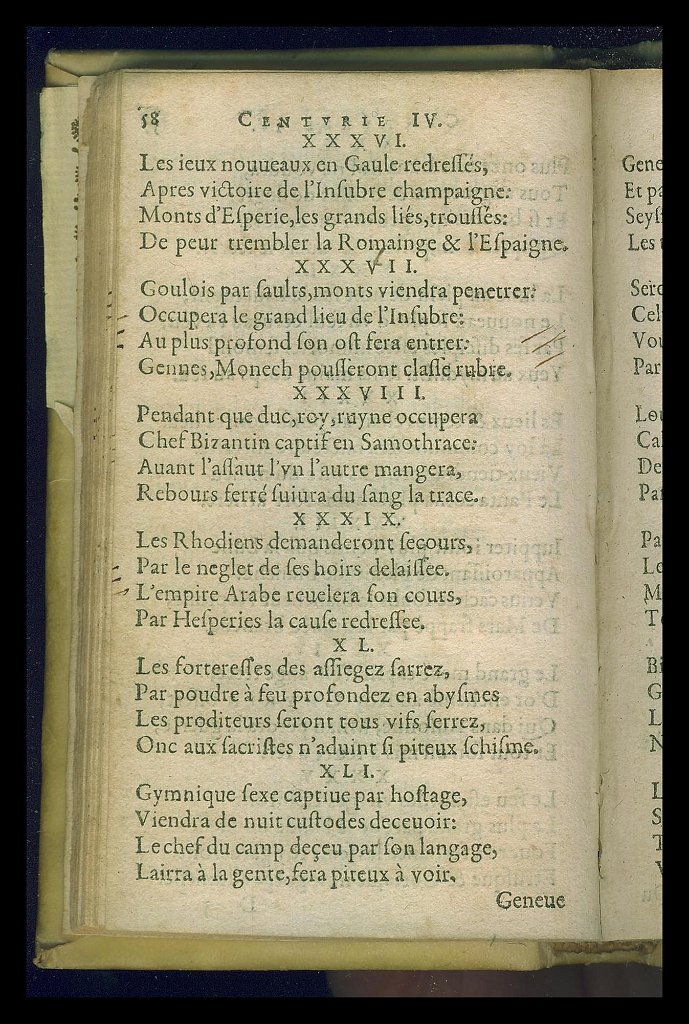 58 CENTVRIE IV.
XXXVI.
Les ieux nouueaux en Gaule redreſſés,
Apres victoire de l'Inſubre champaigne:
Monts d'Eſperie, les grands liés, trouſſés:
De peur trembler la Romainge & l'Eſpaigne.
XXXVII.
Goulois par ſaults, monts viendra penetrer:
Occupera le grand lieu de l'Inſubre:
Au plus profond ſon oſt fera entrer:
Gennes, Monech pouſſeront claſſe rubre.
XXXVIII.
Pendant que duc, roy, ruyne occupera
Chef Bizantin captif en Samothrace:
Auant l'aſſaut l'vn l'autre mangera,
Rebours ferré ſuiura du ſang la trace.
XXXIX.
Les Rhodiens demanderont ſecours,
Par le neglet de ſes hoirs delaiſſee.
L'empire Arabe reuelera ſon cours,
Par Heſperies la cauſe redreſſee.
XL.
Les fortereſſes des aſſiegez ſarrez,
Par poudre à feu profondez en abyſmes
Les proditeurs ſeront tous vifs ſerrez,
Onc aux ſacriſtes n'aduint ſi piteux ſchiſme.
XLI.
Gymnique ſexe captiue par hoſtage,
Viendra de nuit cuſtodes deceuoir:
Le chef du camp deçeu par ſon langage,
Lairra à la gente, ſera piteux à voir.
Geneue
Gene
Et pa
Seyſ
Les
Cel
Vou
Par
Lou
Ca
De
Pa
Pa
Le
M
T
B
G
L
N
L
S